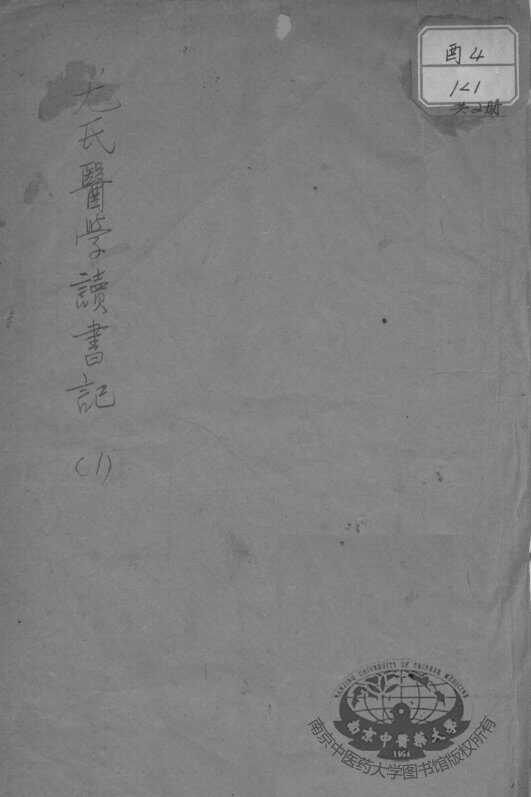 酉4
121
共2册
尤氏醫学讀書記
(1)
NANJING UNIVERSITY OF CHINESE MEDICINE
南京中醫藥大學
1954
南京中医药大学图书馆版权所有